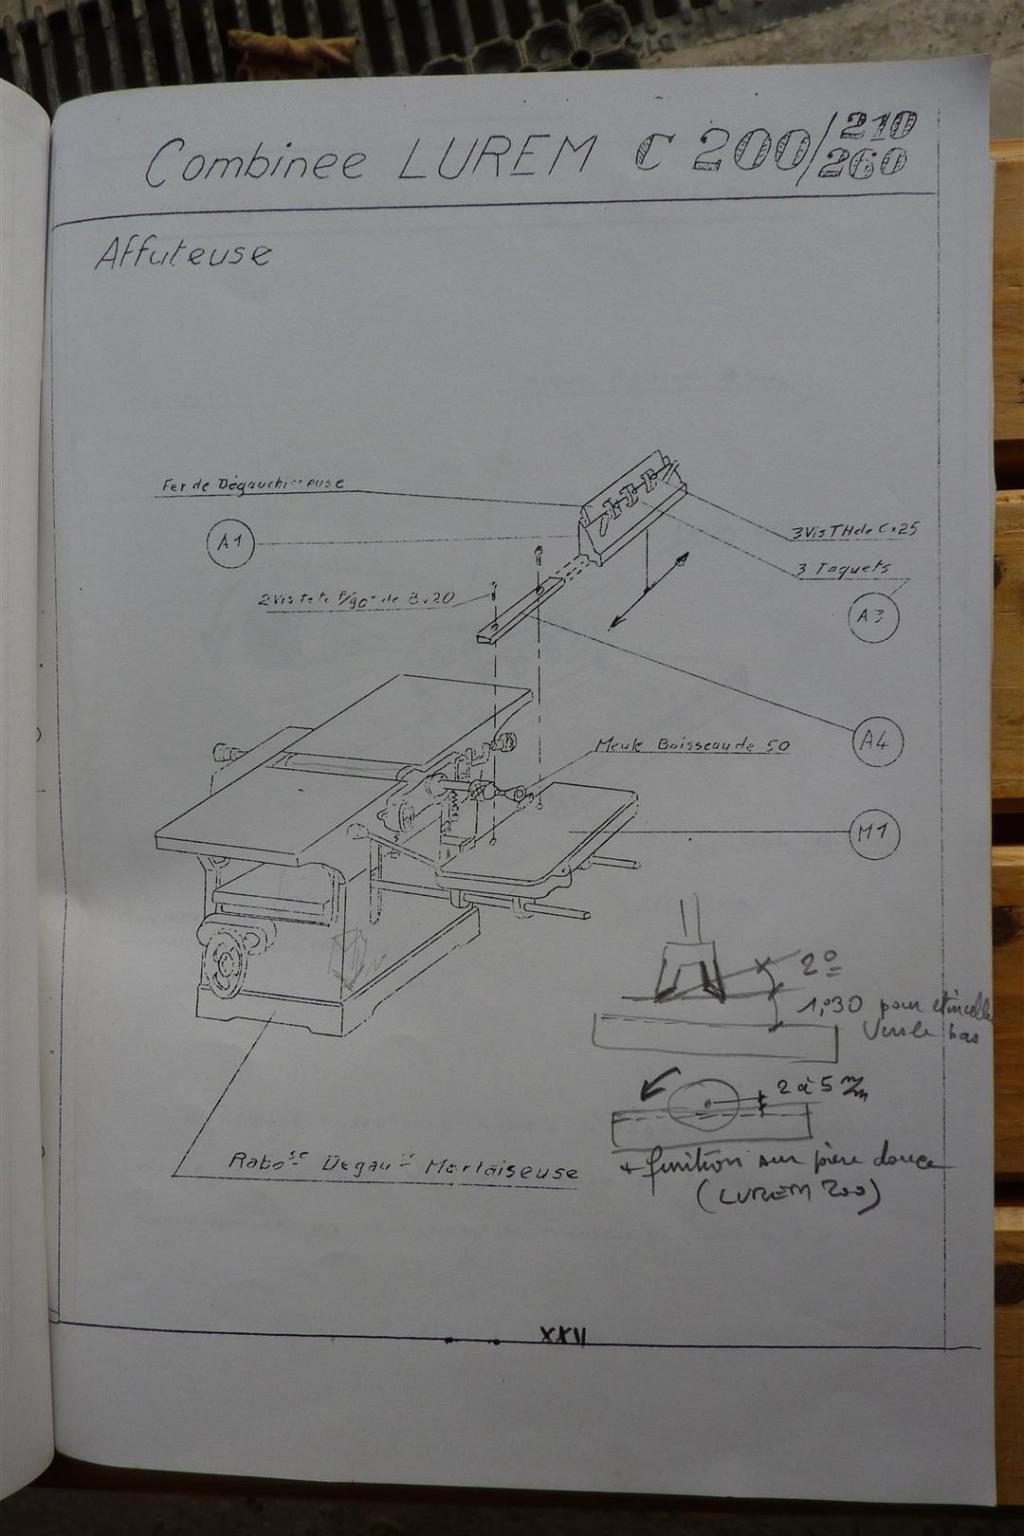 Combinee LUREM C 200/210
260
Affuteuse
Fer de Dégauchisseuse
A1
3 Vis TH de 6×25
2 Vis tete F/90° de 8×20
3 Taquets
A3
A4
Meule Boisseau de 50
M1
2°
1,°30 pour étincelle
Vers le bas
2 à 5 m/m
Rabo se Dégau se Mortaiseuse
+ finition sur pière douce
(LUREM 200)
XXII